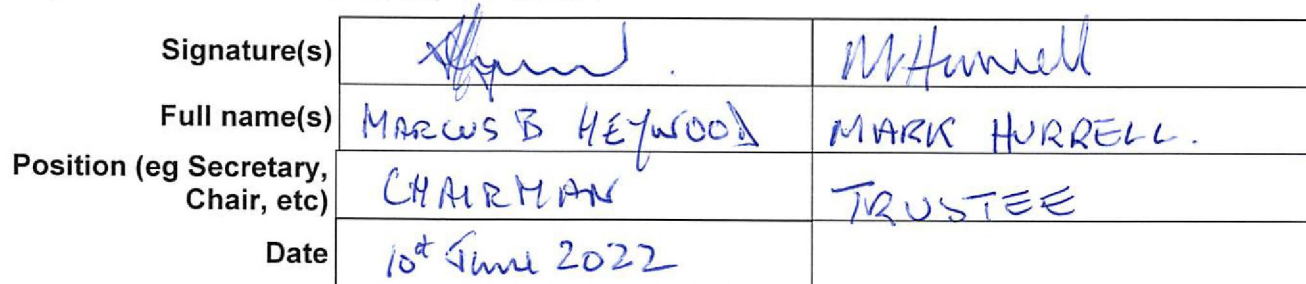 Signature(s) M Hurrell
Full name(s) MARCUS B HEYWOOD MARK HURRELL.
Position (eg Secretary, Chair, etc) CHAIRMAN TRUSTEE
Date 10th June 2022